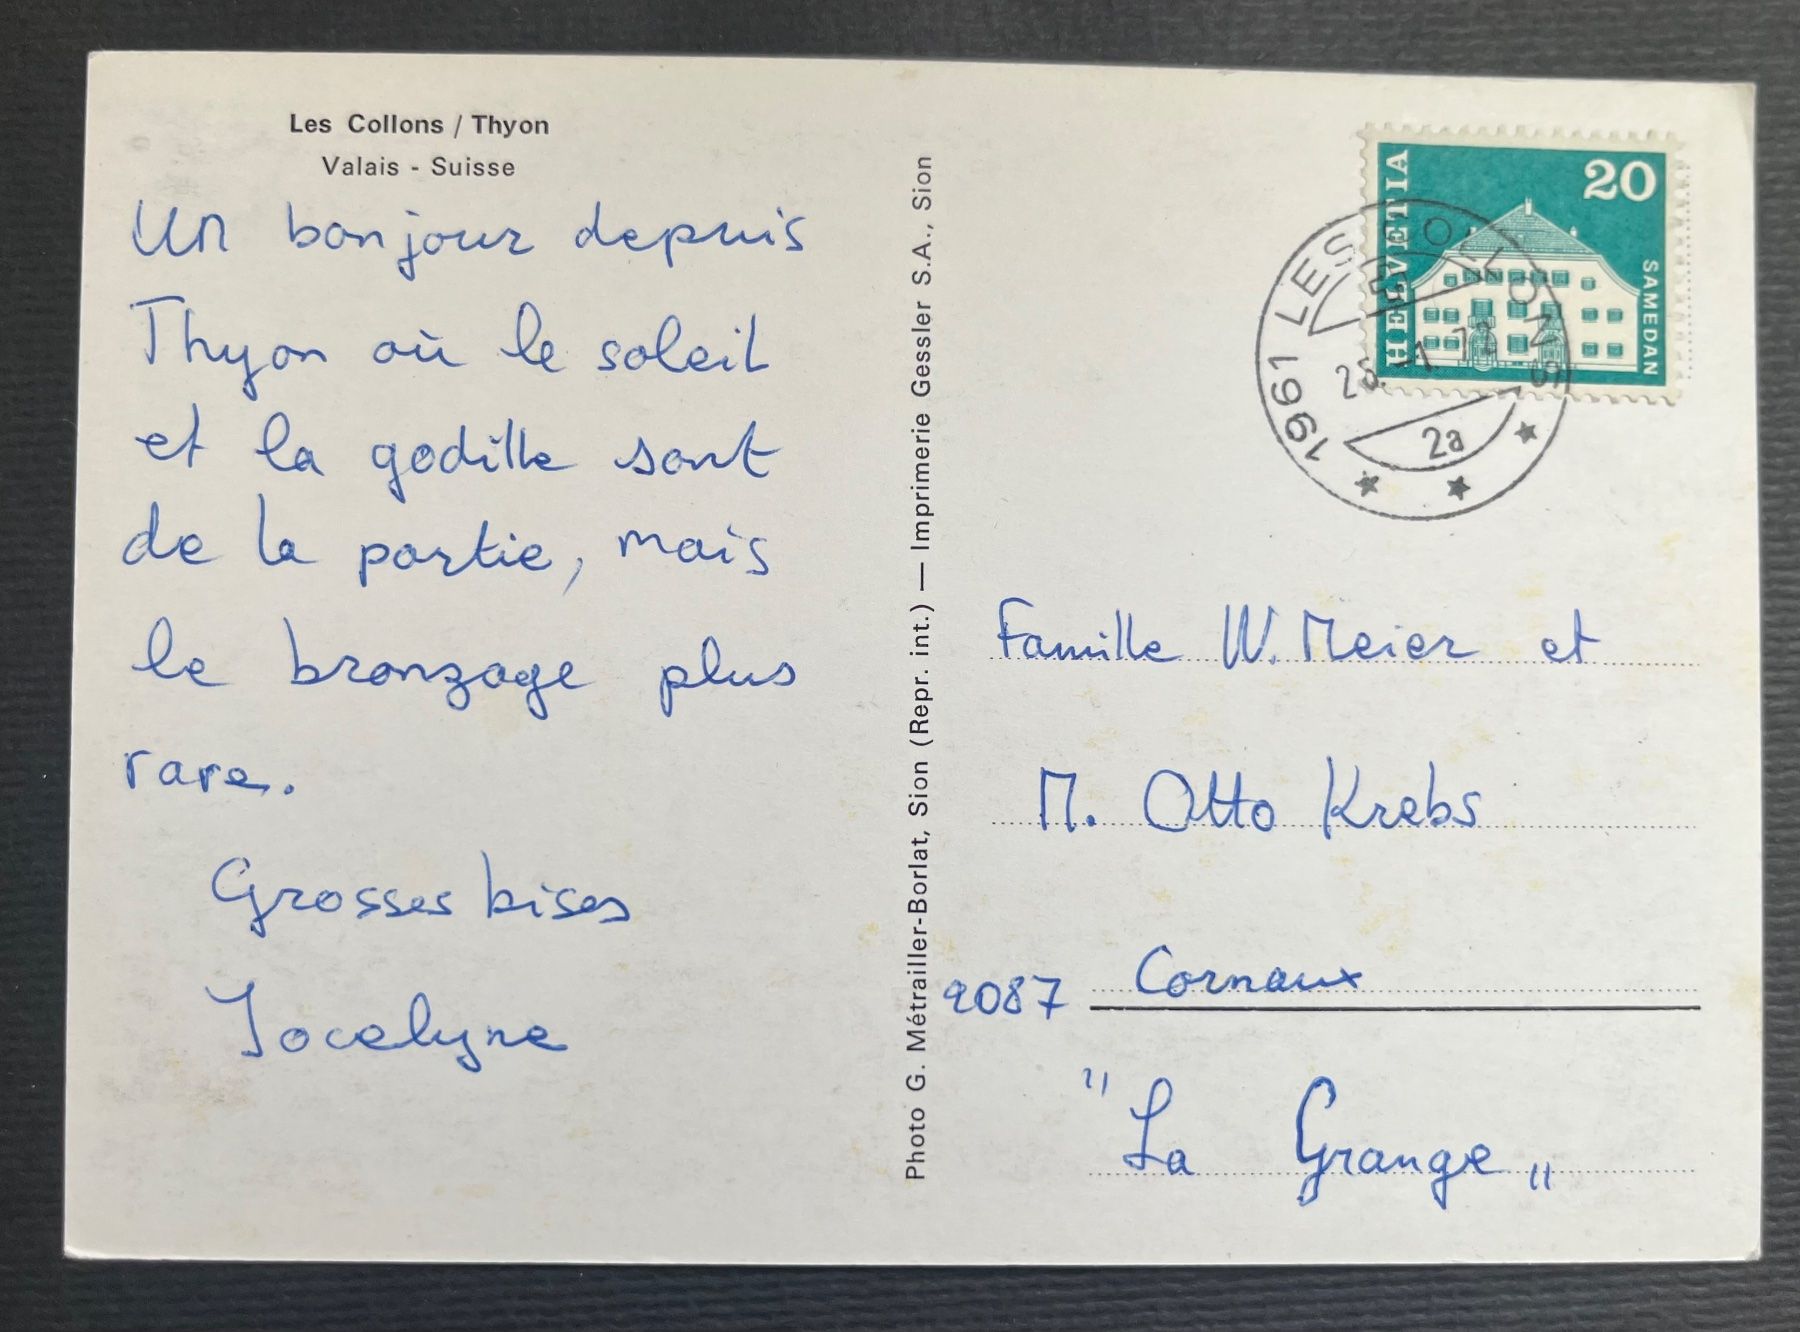 Les Collons / Thyon
Valais - Suisse
Un bonjour depuis
Thyon où le soleil
et la godille sont
de la partie, mais
le bronzage plus
rare.
Grosses bises
Jocelyne
Photo G. Métrailler-Borlat, Sion (Repr. int.) — Imprimerie Gessler S.A., Sion
HELVETIA
20
SAMEDAN
1961 LES COLLONS
2a
Famille W. Meier et
M. Otto Krebs
2087 Cornaux
"La Grange"